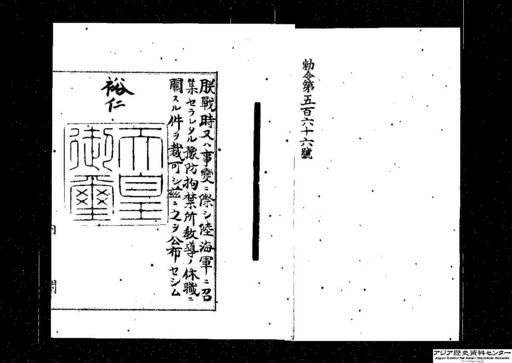 勅令第五百六十六號
朕戰時又ハ事變ニ際シ陸海軍ニ召
集セラレタル豫防拘禁所敎導ノ休職ニ
關スル件ヲ裁可シ玆ニ之ヲ公布セシム
裕仁
天皇
御璽
内
閣
アジア歴史資料センター
Japan Center for Asian Historical Records